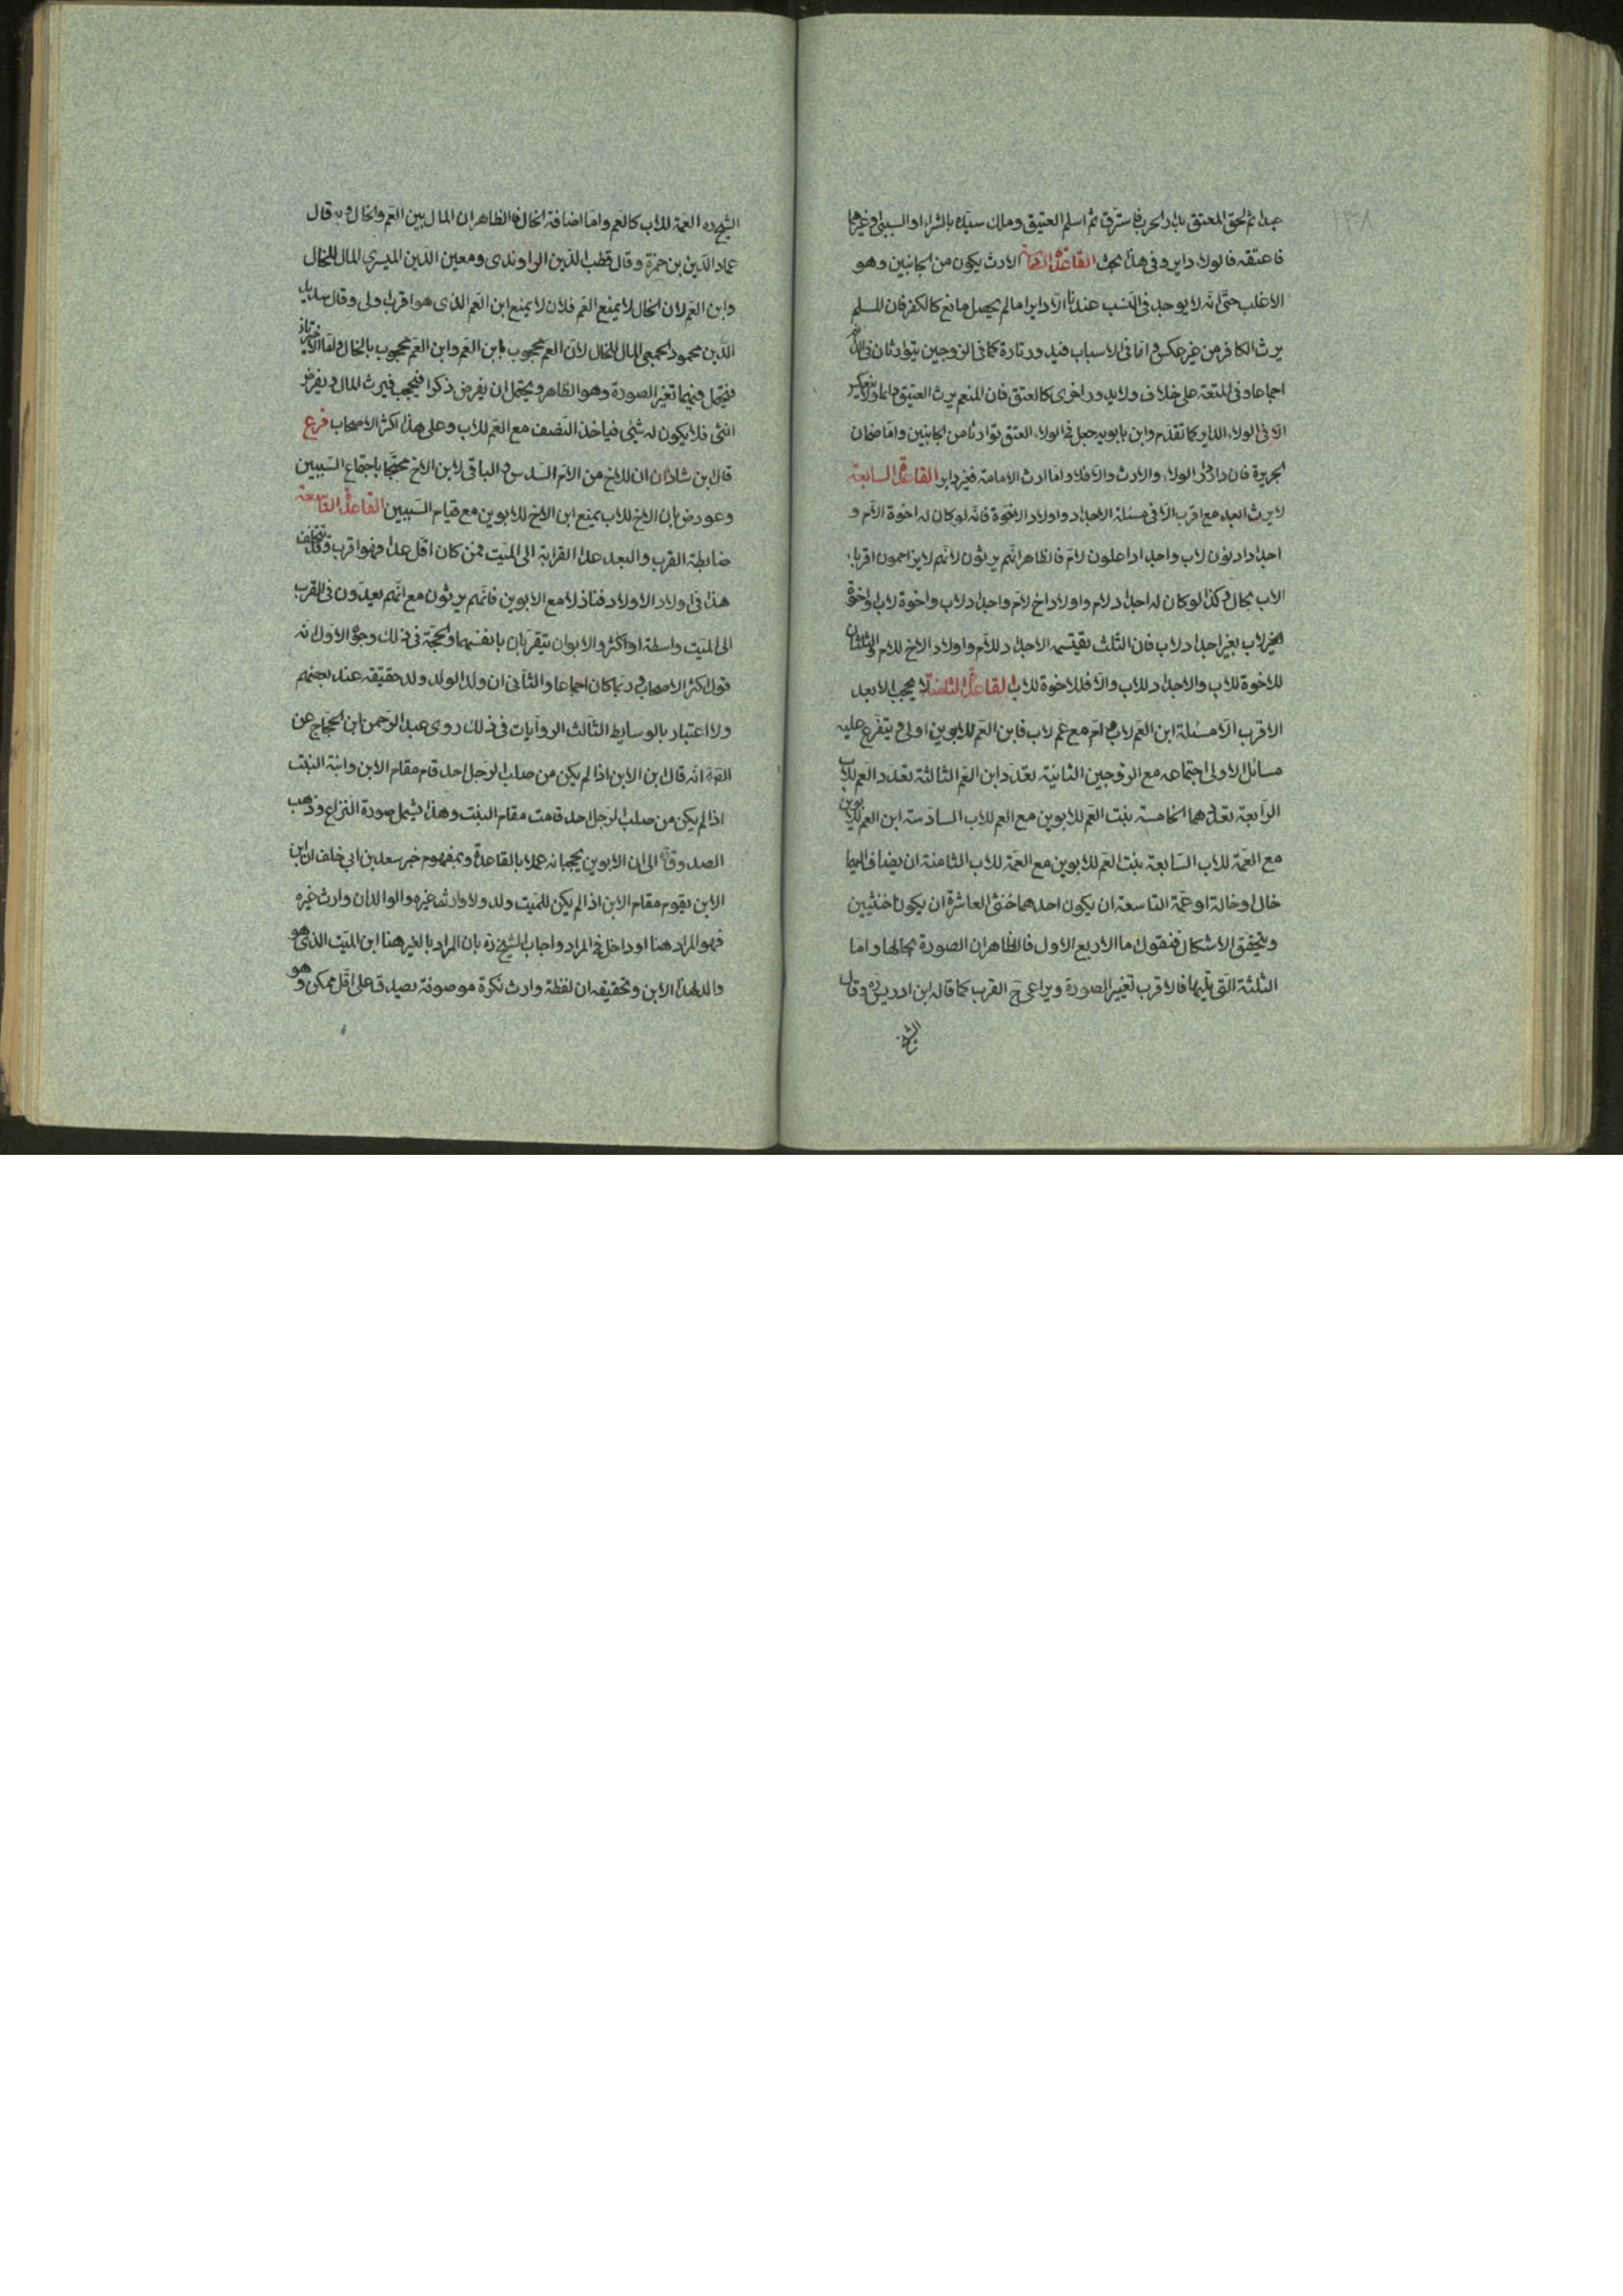 ١٣٨
عبدا ثم لحق المعتق بدار الحرب فاسترق ثم اسلم العتيق وملك سيده بالشراء او السبى وغيرهما
فاعتقه فالولاء داير وفى هذا بحث القاعدة الارث يكون من الجانبين وهو
الاغلب حتى انه لا يوجد فى النسب عندنا الا دايرا ما لم يحصل مانع كالكفر فان المسلم
يرث الكافر من غير عكس و اما فى الاسباب فيدور تارة كما فى الزوجين يتوارثان فى
اجماعا وفى المتعة على خلاف ولا يدور اخرى كالعتق فان المنعم يرث العتيق دايما ولا
الا فى الولاء الداير كما تقدم وابن بابويه جعل فى الولاء العتق توارثا من الجانبين واما ضمان
الجريرة فان دار فى الولاء والارث والا فلا واما ارث الامامة فغير داير القاعدة السابعة
لا يرث البعيد مع اقرب الا فى مسئلة الاجداد واولاد الاخوة فانه لو كان له اخوة الام و
اجدادا دنون لاب واجدادا علون لام فالظاهر انهم يرثون لانهم لا يزاحمون اقرباء
الاب بحال وكذا لو كان له اجداد لام واولاد اخ لام واجداد لاب واخوة لاب او اخوة
لاب بغير اجداد لاب فان الثلث يقتسمه الاجداد للام واولاد الاخ للام والثلثان
للاخوة للاب والاجداد للاب والا فللاخوة للاب القاعدة الثامنة لا يحجب الابعد
الاقرب الا مسئلة ابن العم لاب وام مع عم لاب فابن العم للابوين اولى ويتفرع عليه
مسائل الاولى اجتماعه مع الزوجين الثانية تعدد ابن العم الثالثة تعدد العم للاب
الرابعة تعددهما الخامسة بنت العم للابوين مع العم للاب السادسة ابن العم للابوين
مع العمة للاب السابعة بنت العم للابوين مع العمة للاب الثامنة ان يضاف اليهما
خال او خالة او عمة التاسعة ان يكون احدهما خنثى العاشرة ان يكونا خنثيين
ويتحقق الاشكال فنقول اما الاربع الاول فالظاهر ان الصورة بحالها واما
الثلثة التى تليها فالاقرب تغيير الصورة ويراعى ح القرب كما قاله ابن ادريس ره وقال
الشيخ
الشيخ ره العمة للاب كالعم واما اضافة الخال فالظاهر ان المال بين العم والخال وبه قال
عماد الدين بن حمزة وقال قطب الدين الراوندى ومعين الدين المصرى المال للخال
وابن العم لان الخال لا يمنع العم فلان لا يمنع ابن العم الذى هو اقرب اولى وقال سديد
الدين محمود الحمصى المال للخال لان العم محجوب بابن العم وابن العم محجوب بالخال واما الاخيرتان
فيحتمل فيهما تغير الصورة وهو الظاهر ويحتمل ان يفرض ذكرا فيحجب فيرث المال ويفرض
انثى فلا يكون له شئ فياخذ النصف مع العم للاب وعلى هذا اكثر الاصحاب فرع
قال ابن شاذان ان للاخ من الام السدس والباقى لابن الاخ محتجا باجتماع السببين
وعورض بان الاخ للاب يمنع ابن الاخ للابوين مع قيام السببين القاعدة التاسعة
ضابطة القرب والبعد عدد القرابة الى الميت فمن كان اقل عددا فهو اقرب وقد يتخلف
هذا فى اولاد الاولاد فنازلا مع الابوين فانهم يرثون مع انهم بعيدون فى القرب
الى الميت واسطة او اكثر والابوان يتقربان بانفسهما والحجة فى ذلك وجوه الاول انه
قول اكثر الاصحاب وربما كان اجماعا والثانى ان ولد الولد ولد حقيقة عند بعضهم
ولا اعتبار بالوسايط الثالث الروايات فى ذلك روى عبد الرحمن ابن الحجاج عن
انه قال ابن الابن اذا لم يكن من صلب الرجل احد قام مقام الابن وابنة البنت
اذا لم يكن من صلب الرجل احد قامت مقام البنت وهذا يشمل صورة النزاع وذهب
الصدوق الى ان الابوين يحجبانه عملا بالقاعدة وبمفهوم خبر سعد بن ابى خلف ان ابن
الابن يقوم مقام الابن اذا لم يكن للميت ولد ولا وارث غيره والوالدان وارث غيره
فهو المراد هنا او داخل فى المراد واجاب الشيخ ره بان المراد بالغير هنا ابن الميت الذى هو
والد لهذا الابن وتحقيقه ان لفظة وارث نكرة موصوفة يصدق على اقل ممكن وهو